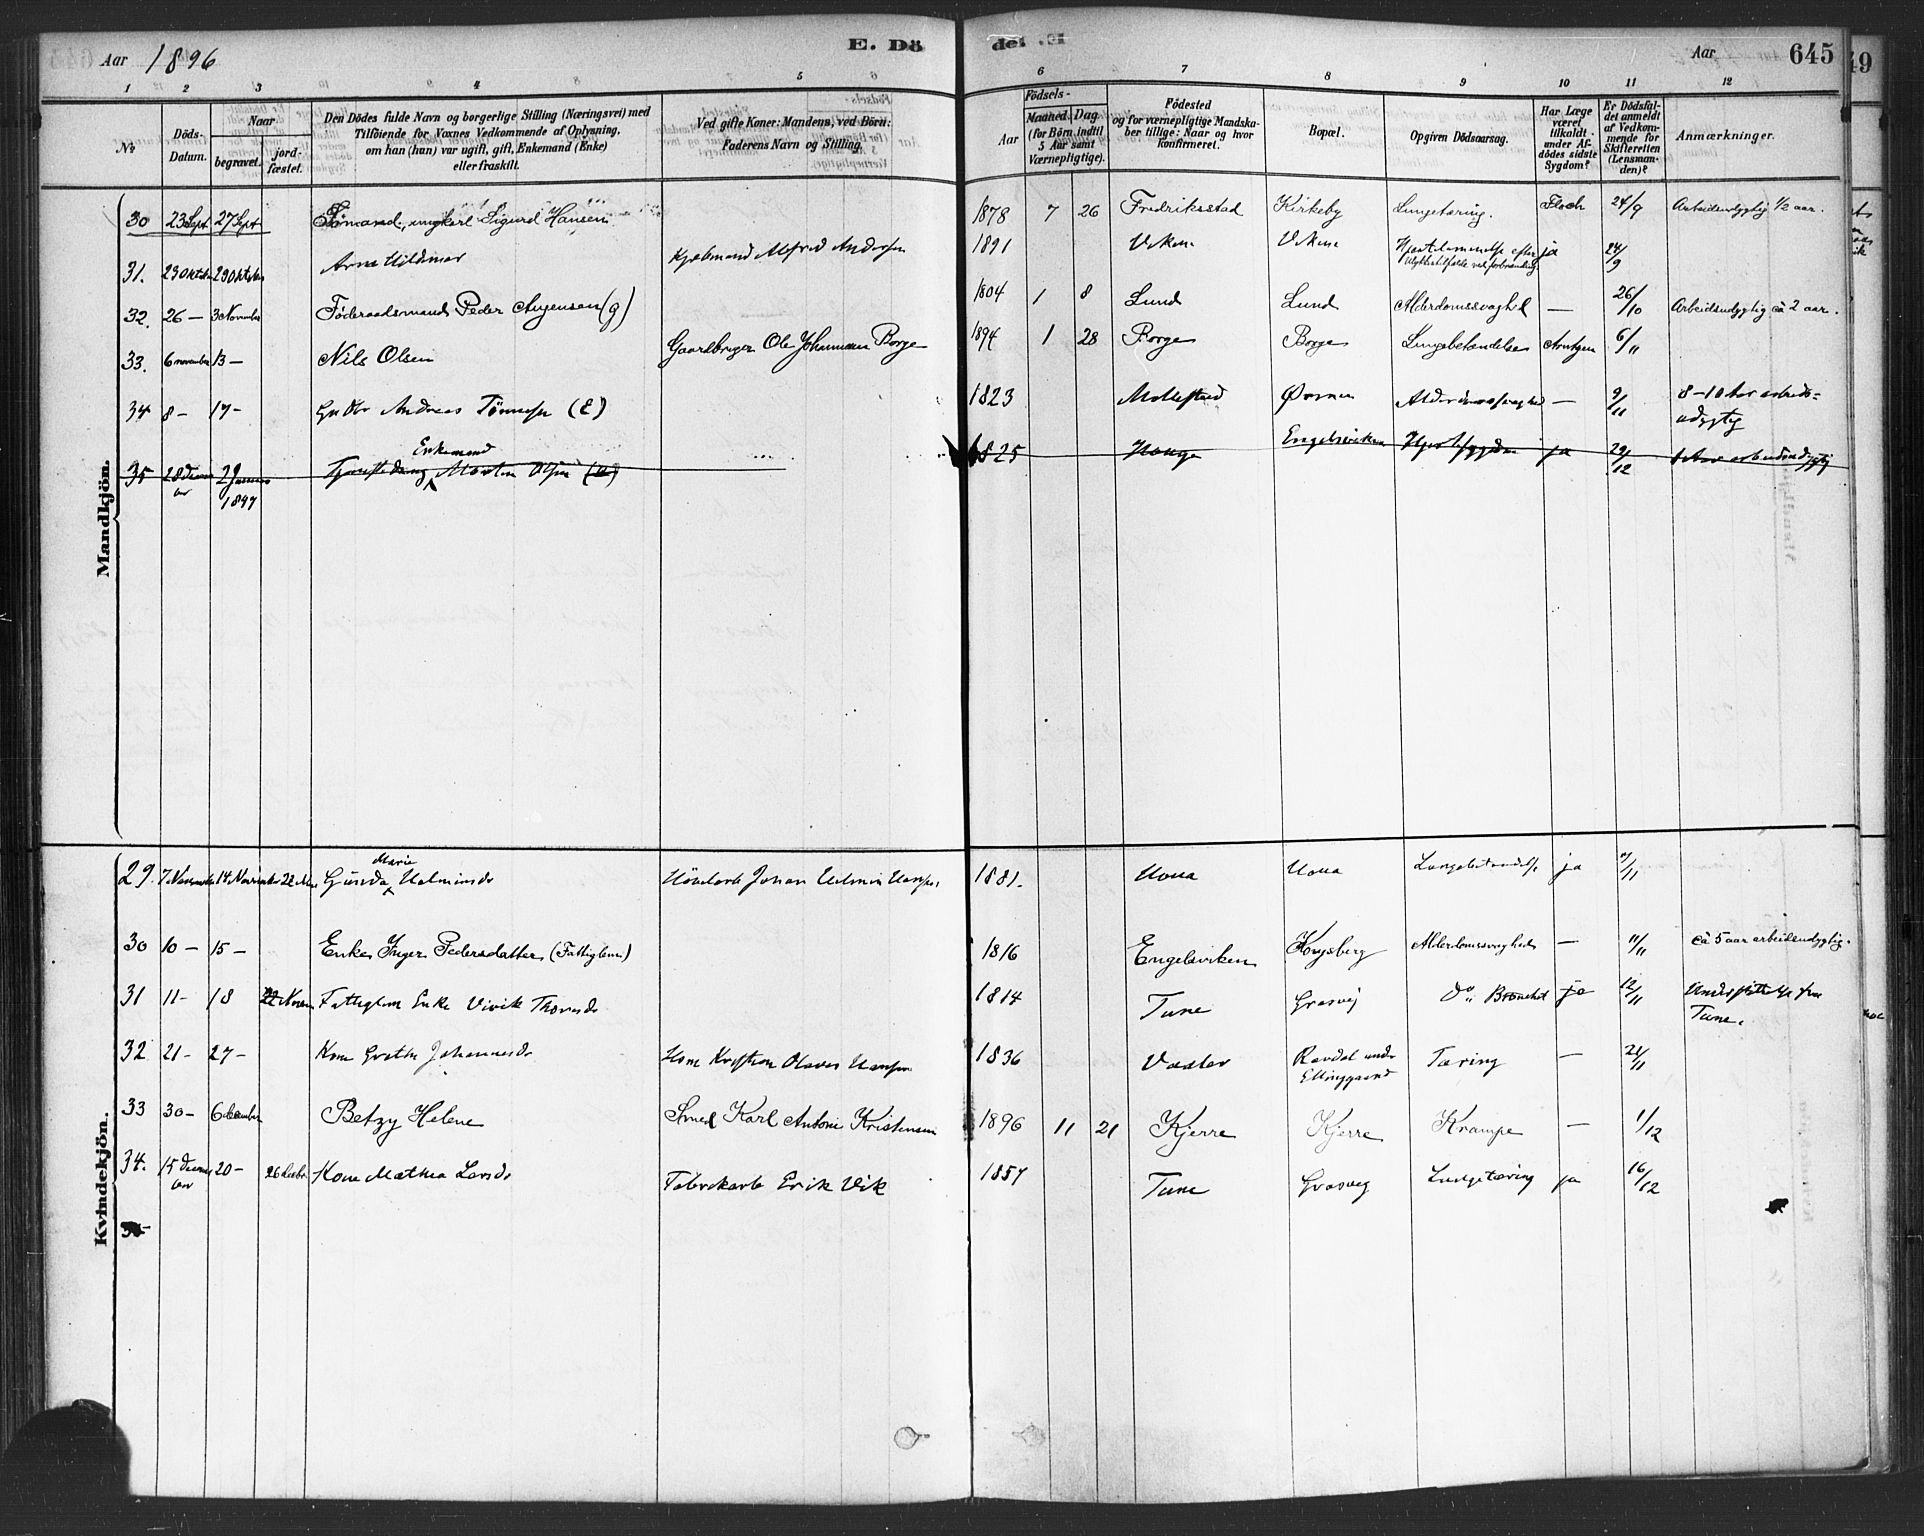 Aar 1896 E. Dö de! .E Aar 645
1 2 3 4 5 6 7 8 9 10 11 12
No
Döds-Datum.
Naar
begravet.
jord-fæstet.
Den Dödes fulde Navn og borgerlige Stilling (Næringsvei) med
Tilföiende for Voxnes Vedkommende af Oplysning,
om han (hun) var ugift, gift, Enkemand (Enke)
eller fraskilt.
Ved gifte Koner: Mandens, ved Börn:
Faderens Navn og Stilling.
Födsels-
Aar
Maaned. Dag.
(for Börn indtil
5 Aar samt
Værnepligtige).
Födested
og for værnepligtige Mandska-
ber tillige: Naar og hvor
konfirmeret.
Bopæl.
Opgiven Dödsaarsag.
Har Læge
været
tilkaldt
under Af-
dödes sidste
Sygdom?
Er Dödsfal-
det anmeldt
af Vedkom-
mende for
Skifteretten
(Lensman-
den)?
Anmærkninger.
Mandkjön.
30 23 Sept. 27 Sept Sömand, ungkarl Sigurd Hansen 1878 7 26 Fredriksstad Kirkeby Lungetæring. Floch 24/9 Arbeidsudygtig 1/2 aar.
31. 23 Oktober 29 Oktober Arne Hildimar Kjøbmand Alfred Andersen 1891 Viken Viken Hjertelammelse efter ja 24/9
Ulykkestilfælde ved forbrænding
32. 26 — 3 November Föderaadsmand Peder Jørgensen (g) 1804 1 8 Lund Lund Alderdomssvaghed — 26/10 Arbeidsudygtig ca 2 aar.
33. 6 november 13 — Nils Olsen Gaardbruger Ole Johannesen Borge 1894 1 28 Borge Borge Lungebetændelse 6/11
34 8 — 17 — Andreas Tönnesen (E) 1823 Ørmen Alderdomssvaghed — 9/11 8-10 Aar arbeids-
udygtig
Enkemand
35 28 Decem 2 Januar Morten Olsen 1825 Hauge Engelsviken Hjertesygdom ja 29/12 1 Aar arbeidsudygtig
ber 1897
Kvindekjön.
Marie
29. 7 November 14 November 22 Nov Gunda Halmine Johan Hansen 1881. Houa Houa Lungebetændelse ja 7/11
30 10 — 15 — Enke Inger Pedersdatter (Fattiglem) 1816 Engelsviken Kongsberg Alderdomssvaghed — 11/11 ca 5 aar arbeidsudygtig.
31 11 — 18 22 Novem Fattiglem Enke Thoresdr 1814 Tune Græsvig do Bronchit ja 12/11 Understöttelse fra
Tune.
32 21 — 27 — Kone Grethe Johannesdr Olaves Hansen 1836 Vaaler Ravdal under Tæring — 21/11
Elinggaard
33 30 — 6 december Betzy Helene Smed Karl Antoni Kristensen 1896 11 21 Kjerre Kjerre Krampe — 1/12
34. 15 Decem 20 — 26 Decbr Kone Mathea Larsdr Fabrikarb Erik Vik 1857 Tune Græsvig Lungetæring ja 16/12
ber
35